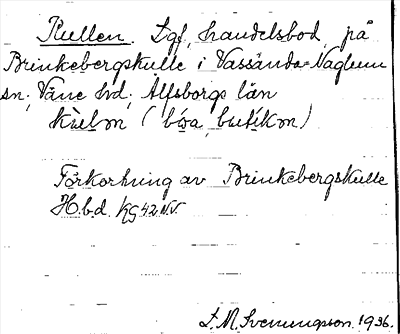 Kullen. Lgf, handelsbod, på
Brinkebergskulle i Vassända-Naglum
sn, Väne hd, Älfsborgs län
(butiken)
Förkortning av Brinkebergskulle
H.b.d. KG 42 N.V.
L. M. Svenungsson. 1936.